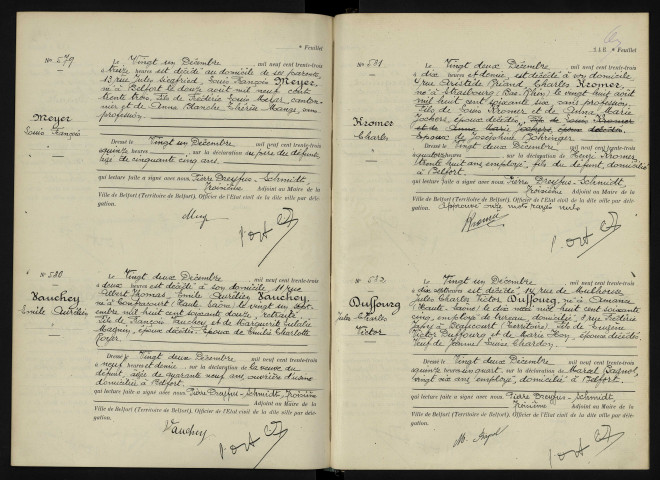 Feuillet
N° 579
Meyer
Louis François
Le Vingt un Décembre mil neuf cent trente-trois
à treize heures est décédé au domicile de ses parents,
13 rue Jules Siegfried, Louis François Meyer,
né à Belfort le douze août mil neuf cent
trente trois, fils de Frédéric Louis Meyer, canton-
nier et de Anna Blanche Thérèse Mange, sans
profession.
Dressé le Vingt un Décembre mil neuf cent trente-trois
à quinze heures sur la déclaration du père du défunt,
âgé de cinquante cinq ans,
qui lecture faite a signé avec nous, Pierre Dreyfus-Schmidt,
Troisième Adjoint au Maire de la
Ville de Belfort (Territoire de Belfort), Officier de l'Etat civil de la dite ville par délé-
gation.
N° 580
Vauchey
Emile Aurélien
Le Vingt deux Décembre mil neuf cent trente-trois
à deux heures est décédé à son domicile, 11 rue
Albert Thomas, Emile Aurélien Vauchey,
né à (Haute Saône) le vingt un sept-
embre mil huit cent soixante douze, retraité,
fils de François Vauchey et de Marguerite Eulalie
Maquin, époux décédés. Epoux de Emilie Charlotte
Dressé le Vingt deux Décembre mil neuf cent trente-trois
à neuf heures et demie sur la déclaration de la veuve du
défunt, âgée de quarante neuf ans, ouvrière d'usine
domiciliée à Belfort,
qui lecture faite a signé avec nous, Pierre Dreyfus-Schmidt, Troisième
Adjoint au Maire de la
Ville de Belfort (Territoire de Belfort), Officier de l'Etat civil de la dite ville par délé-
gation.
Vauchey
Feuillet
N° 581
Kromer
Charles
Le Vingt deux Décembre mil neuf cent trente-trois
à dix heures et demie, est décédé à son domicile
rue Aristide Briand, Charles Kromer,
né à Strasbourg (Bas-Rhin) le vingt huit août
mil huit cent soixante six, sans profession,
fils de Louis Kromer et de Anna Marie
époux décédés. Fils de Louis Kromer
et de Anna Marie époux décédés.
Epoux de Joséphine
Dressé le Vingt deux Décembre mil neuf cent trente-trois
à quatorze heures sur la déclaration de Henri Kromer,
trente huit ans, employé, fils du défunt, domicilié
à Belfort,
qui lecture faite a signé avec nous, Pierre Dreyfus-Schmidt,
Troisième Adjoint au Maire de la
Ville de Belfort (Territoire de Belfort), Officier de l'Etat civil de la dite ville par délé-
gation. Approuvé onze mots rayés nuls
Kromer
N° 582
Duffourg
Jules Charles
Victor
Le Vingt deux Décembre mil neuf cent trente-trois
à dix heures est décédé, 14 rue de Mulhouse,
Jules Charles Victor Duffourg, né à Amance
(Haute Saône) le dix mai mil huit cent soixante
cinq, employé de bureau, domicilié rue Frédéric
à Beaucourt (Territoire). Fils de Eugène
Victor Duffourg et de Marie époux décédés,
Veuf de Louise Chardon.
Dressé le Vingt deux Décembre mil neuf cent trente-trois
à quinze heures un quart sur la déclaration de Marcel
vingt six ans, employé, domicilié à Belfort,
qui lecture faite a signé avec nous, Pierre Dreyfus-Schmidt,
Troisième Adjoint au Maire de la
Ville de Belfort (Territoire de Belfort), Officier de l'Etat civil de la dite ville par délé-
gation.